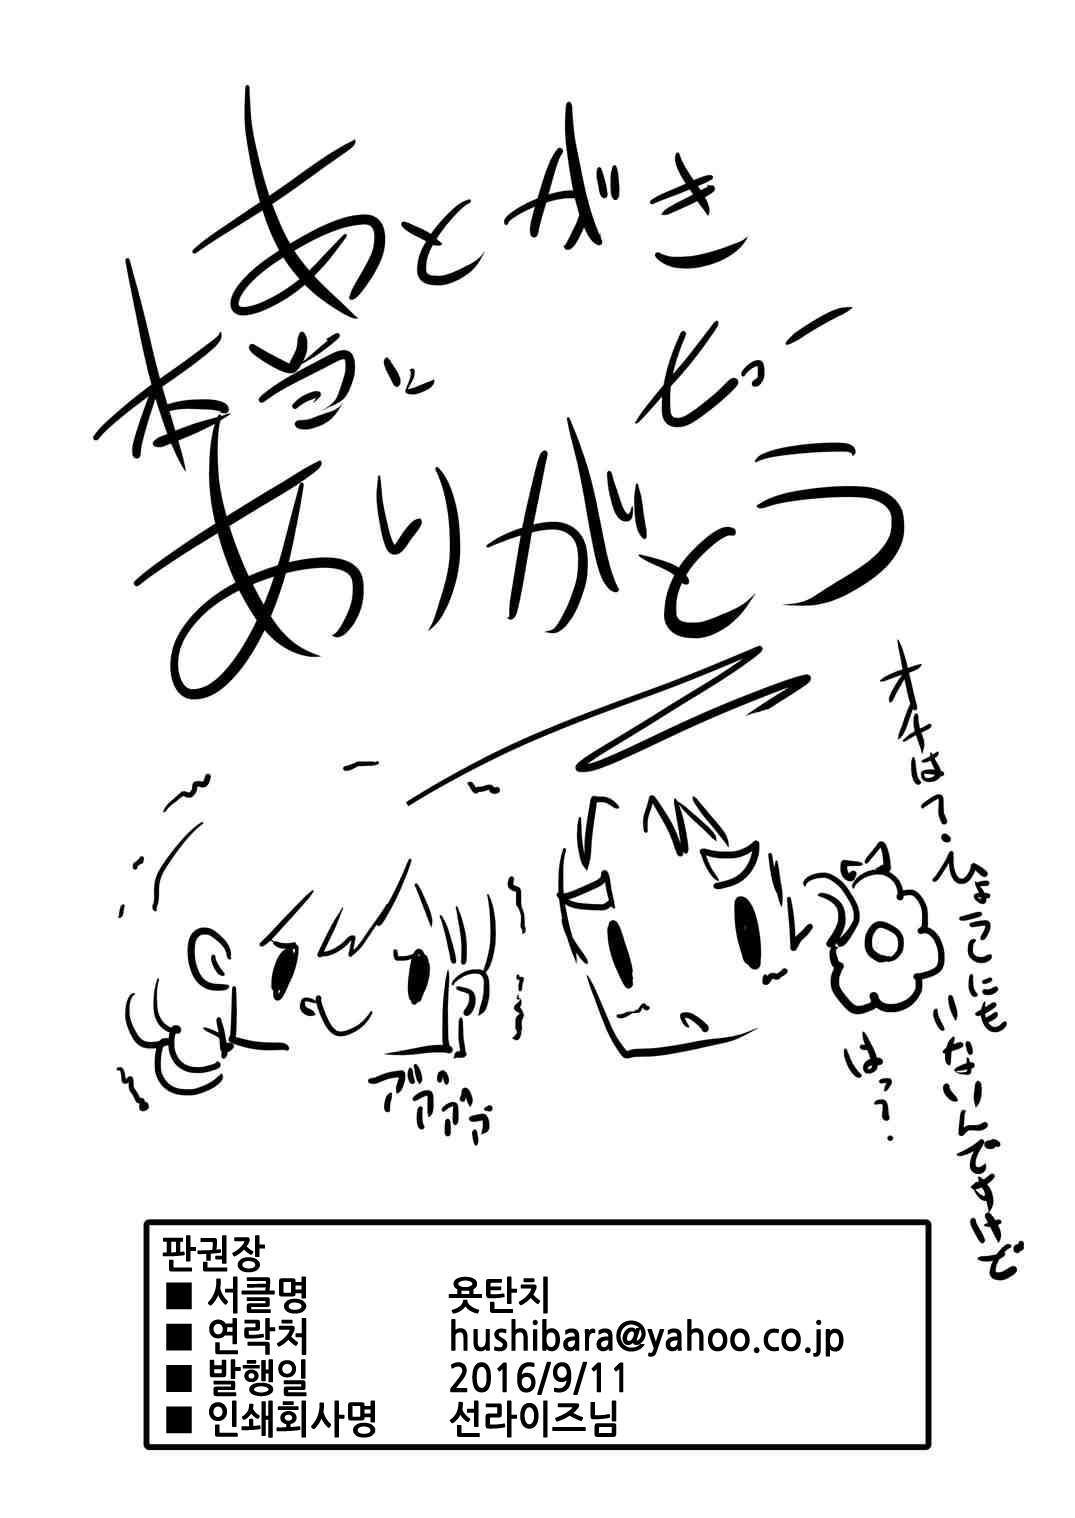 あとがき
本当に
ヒー
ありがとう
オチは?.ひょうこにも
いないんですけど
はっ?.
ププププ
판권장
■ 서클명 욧탄치
■ 연락처 hushibara@yahoo.co.jp
■ 발행일 2016/9/11
■ 인쇄회사명 선라이즈님